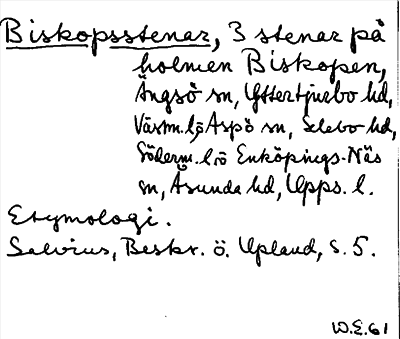 Biskopsstenar, 3 stenar på
holmen Biskopen,
Ängsö sn, Yttertjurbo hd,
Västm. l, ö Aspö sn, Selebo hd,
Söderm. l. o Enköpings-Näs
sn, Åsunda hd, Upps. l.
Etymologi.
Salvius, Beskr. ö. Upland, s. 5.
W.E.61